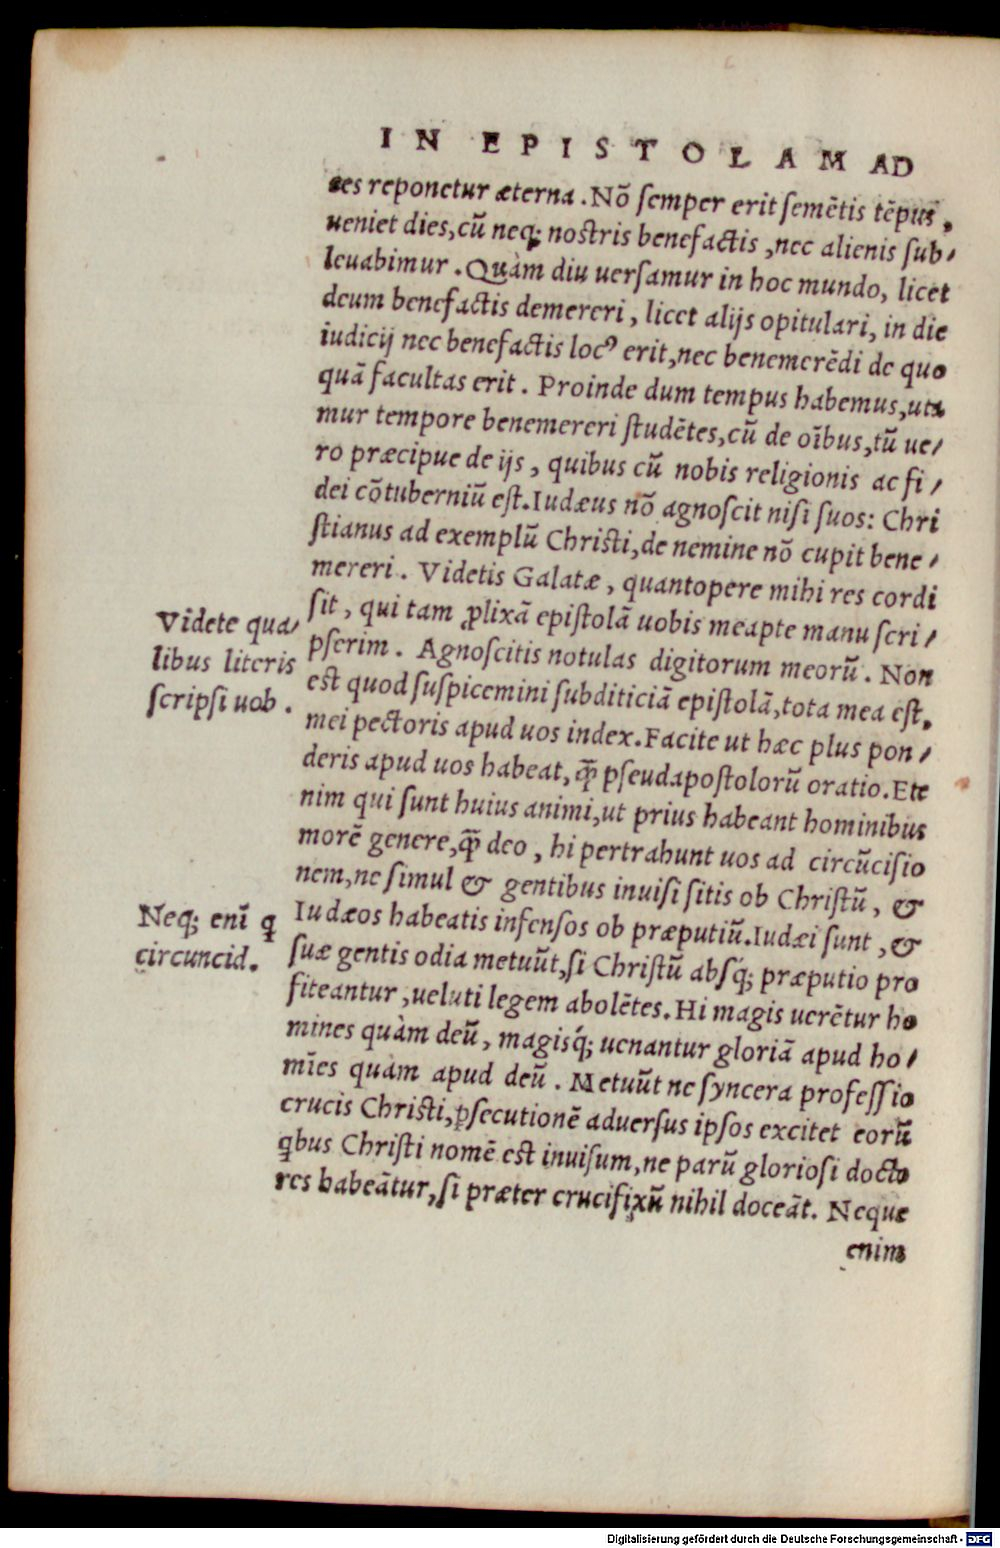 IN EPISTOLAM AD
ses reponetur æterna. Nõ ſemper erit ſemẽtis tẽpus,
ueniet dies, cũ neq; noſtris benefactis, nec alienis ſub/
leuabimur. Quàm diu uerſamur in hoc mundo, licet
deum benefactis demereri, licet alijs opitulari, in die
iudicij nec benefactis locꝰ erit, nec benemerẽdi de quo
quã facultas erit. Proinde dum tempus habemus, uta
mur tempore benemereri ſtudẽtes, cũ de oĩbus, tũ ue/
ro præcipue de ijs, quibus cũ nobis religionis ac fi/
dei cõtuberniũ eſt. Iudæus nõ agnoſcit niſi ſuos: Chri
ſtianus ad exemplũ Chriſti, de nemine nõ cupit bene/
mereri. Videtis Galatæ, quantopere mihi res cordi
ſit, qui tam ꝓlixã epiſtolã uobis meapte manu ſcri/
Videte qua/
libus literis
ſcripſi uob.
pſerim. Agnoſcitis notulas digitorum meorũ. Non
eſt quod ſuſpicemini ſubditiciã epiſtolã, tota mea eſt,
mei pectoris apud uos index. Facite ut hæc plus pon/
deris apud uos habeat, q̃ꝫ pſeudapoſtolorũ oratio. Ete
nim qui ſunt huius animi, ut prius habeant hominibus
morẽ genere, q̃ꝫ deo, hi pertrahunt uos ad circũciſio
nem, ne ſimul & gentibus inuiſi ſitis ob Chriſtũ, &
Iudæos habeatis infenſos ob præputiũ. Iudæi ſunt, &
Neq; enĩ ꝗ
circuncid.
ſuæ gentis odia metuũt, ſi Chriſtũ abſq́; præputio pro
fiteantur, ueluti legem abolẽtes. Hi magis uerẽtur ho
mines quàm deũ, magisq́; uenantur gloriã apud ho/
mĩes quàm apud deũ. Metuũt ne ſyncera profeſſio
crucis Chriſti, ꝑſecutionẽ aduerſus ipſos excitet eorũ
ꝗbus Chriſti nomẽ eſt inuiſum, ne parũ glorioſi docto
res habeãtur, ſi præter crucifixũ nihil doceãt. Neque
enim
Digitalisierung gefördert durch die Deutsche Forschungsgemeinschaft - DFG